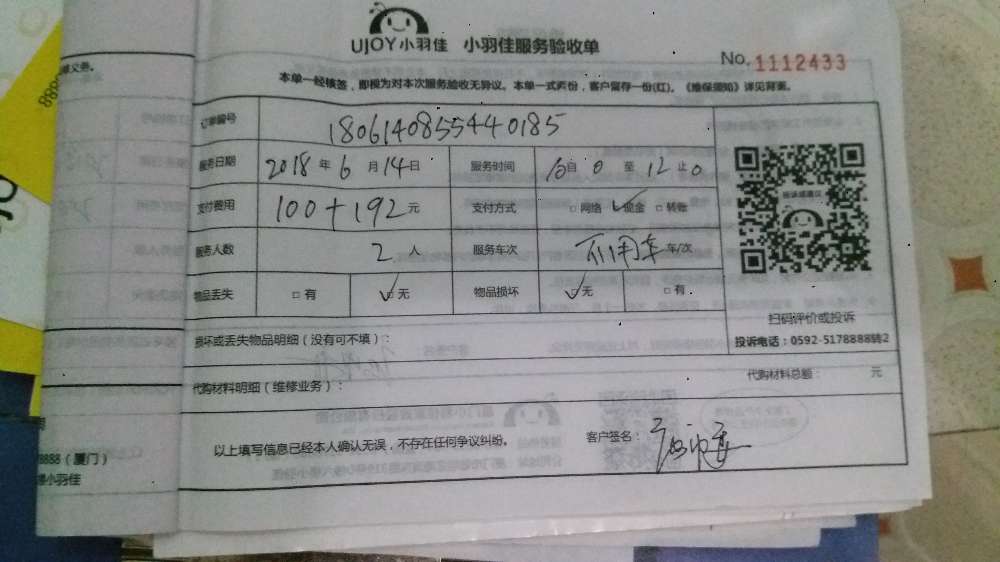 UJOY小羽佳 小羽佳服务验收单
No. 1112433
本单一经核签，即视为对本次服务验收无异议。本单一式两份，客户留存一份(红)。《维保须知》详见背面。
订单编号 1806140855440185
服务日期 2018年6月14日 服务时间 自 0 至 12 止 0
支付费用 100+192元 支付方式 □网络 ✓现金 □转账
服务人数 2人 服务车次 不用车 车/次
物品丢失 □有 ✓无 物品损坏 ✓无 □有
投诉或建议
扫码评价或投诉
投诉电话：0592-5178888转2
损坏或丢失物品明细（没有可不填）：
代购材料明细（维修业务）： 代购材料总额： 元
以上填写信息已经本人确认无误，不存在任何争议纠纷。 客户签名：
修义务。
8888
8888（厦门）
小羽佳